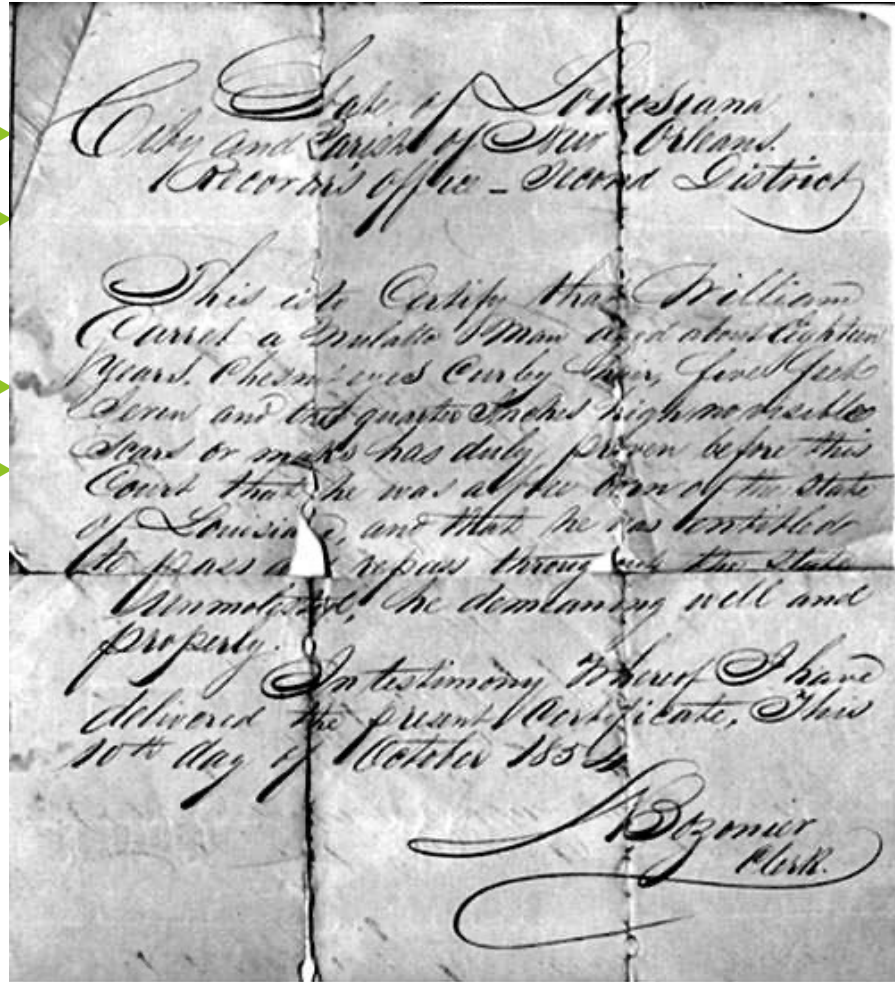 State of Louisiana
City and Parish of New Orleans.
Recorder's office - Second District
This is to Certify that William
Carrel a Mulatto Man aged about Eighteen
Years. Chesnut eyes Curly hair, five feet
Seven and quarter Inches high no visible
Scars or marks has duly proven before this
Court that he was a free born of the State
of Louisiana, and that he was entitled
to pass and repass throughout the State
Unmolested, he demeaning well and
properly.
In testimony Whereof I have
delivered the present Certificate, This
10th day of October
Bozonier
Clerk.